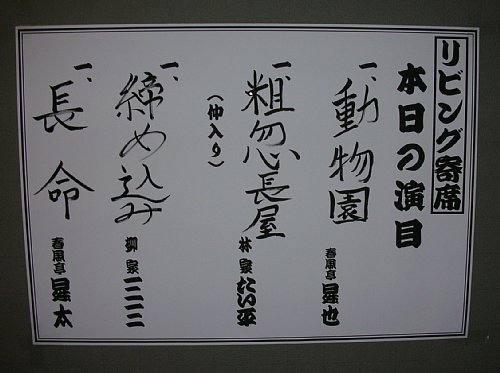 リビング寄席
本日の演目
一、動物園
春風亭 昇也
一、粗忽長屋
林家 たい平
(仲入り)
一、締め込み
柳家 三三
一、長命
春風亭 昇太